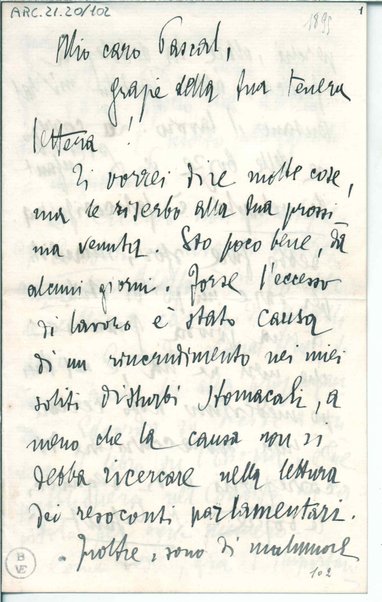 ARC.21.20/102
1895
1
Mio caro Pascal,
grazie della tua tenera
lettera!
Ti vorrei dire molte cose,
ma le riserbo alla tua prossi
ma venuta. Sto poco bene, da
alcuni giorni. Forse l'eccesso
di lavoro è stato causa
di un rincrudimento nei miei
soliti disturbi stomacali, a
meno che la causa non si
debba ricercare nella lettura
dei resoconti parlamentari.
Inoltre, sono di malumore
B
VE
102